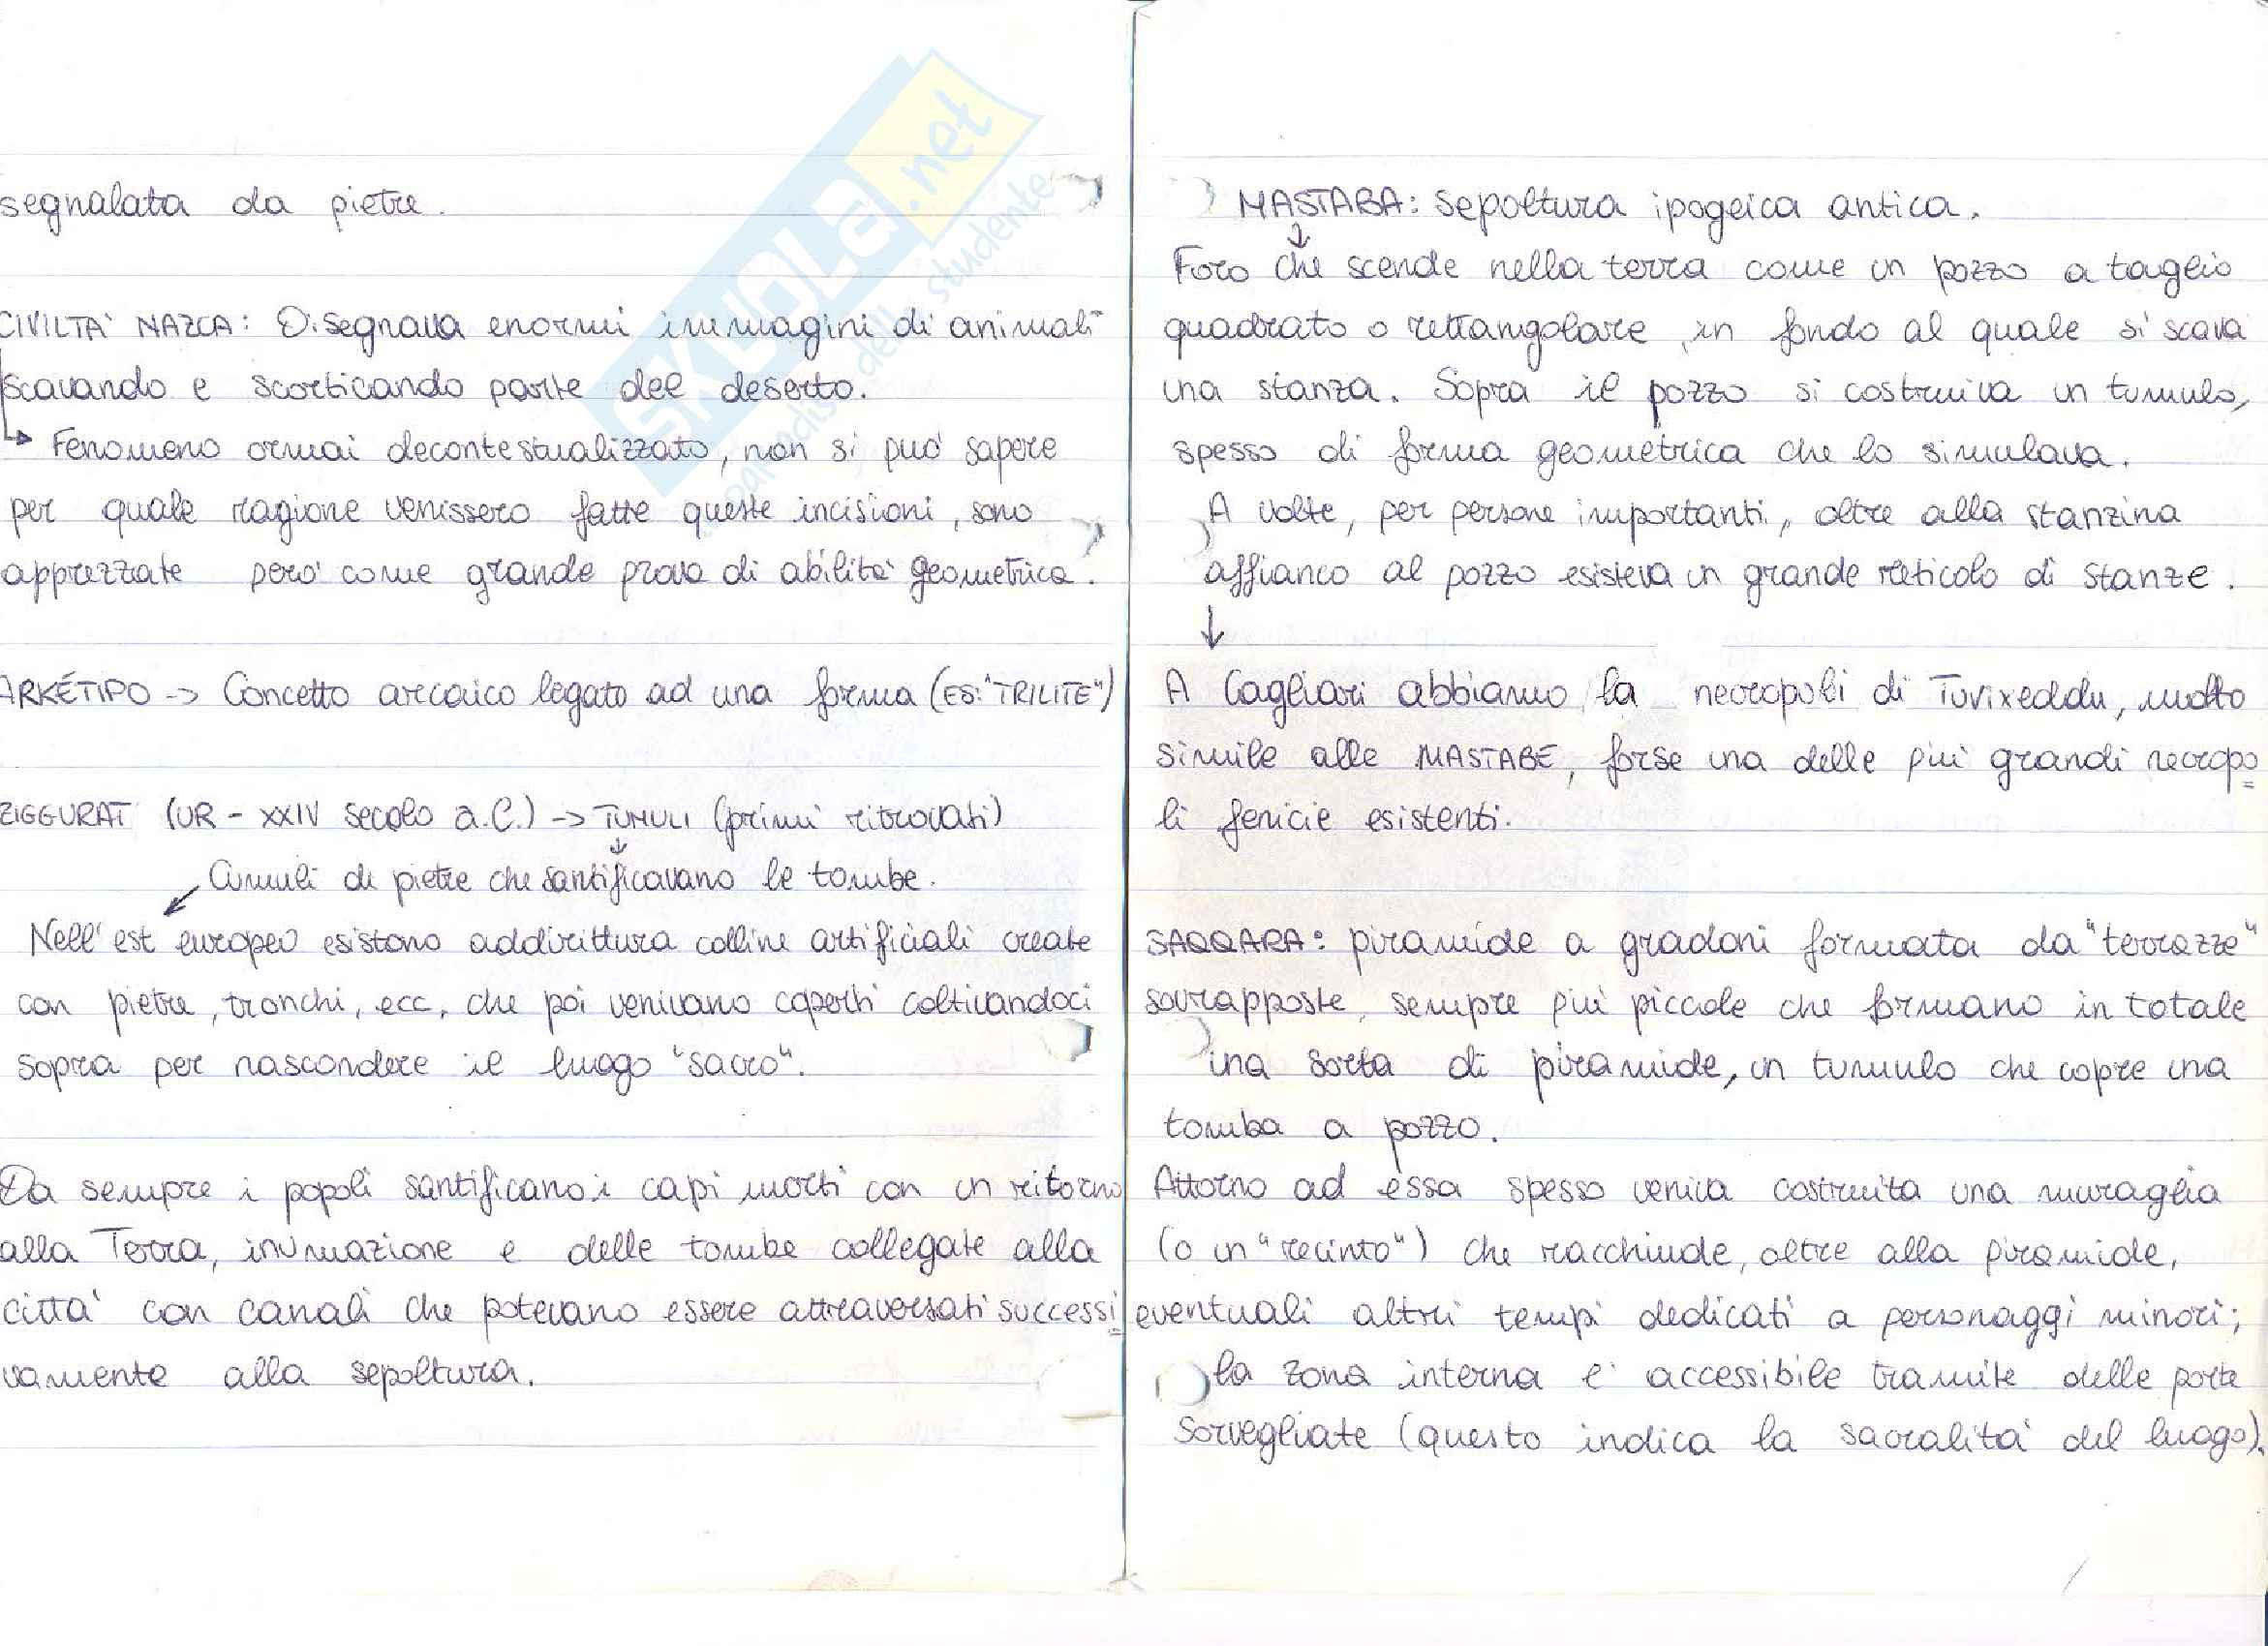 segnalata da pietre.
CIVILTA' NAZCA: Disegnava enormi immagini di animali
scavando e scorticando parte del deserto.
Fenomeno ormai decontestualizzato, non si può sapere
per quale ragione venissero fatte queste incisioni, sono
apprezzate però come grande prova di abilità geometrica.
ARKÉTIPO -> Concetto arcaico legato ad una forma (ES: "TRILITE")
ZIGGURAT (UR - XXIV secolo a.C.) -> TUMULI (primi ritrovati)
Cumuli di pietre che santificavano le tombe.
Nell'est europeo esistono addirittura colline artificiali create
con pietre, tronchi, ecc, che poi venivano coperti coltivandoci
sopra per nascondere il luogo "sacro".
Da sempre i popoli santificano i capi morti con un ritorno
alla Terra, inumazione e delle tombe collegate alla
città con canali che potevano essere attraversati successi
vamente alla sepoltura.
MASTABA: sepoltura ipogeica antica.
Foro che scende nella terra come un pozzo a taglio
quadrato o rettangolare, in fondo al quale si scava
una stanza. Sopra il pozzo si costruiva un tumulo,
spesso di forma geometrica che lo simulava.
A volte, per persone importanti, oltre alla stanzina
affianco al pozzo esisteva un grande reticolo di stanze.
A Cagliari abbiamo la necropoli di Tuvixeddu, molto
simile alle MASTABE, forse una delle più grandi necropo
li fenicie esistenti.
SAQQARA: piramide a gradoni formata da "terrazze"
sovrapposte, sempre più piccole che formano in totale
una sorta di piramide, un tumulo che copre una
tomba a pozzo.
Attorno ad essa spesso veniva costruita una muraglia
(o un "recinto") che racchiude, oltre alla piramide,
eventuali altri tempi dedicati a personaggi minori;
la zona interna è accessibile tramite delle porte
sorvegliate (questo indica la sacralità del luogo).
SKUOLA.net
dello studente